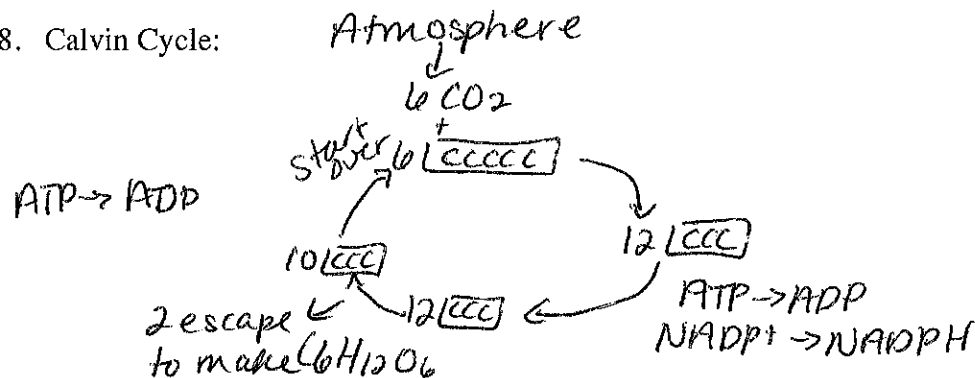 8. Calvin Cycle:
Atmosphere
6 CO2
+
start over
6 CCCCC
ATP → ADP
12 CCC
ATP → ADP
NADP+ → NADPH
12 CCC
10 CCC
2 escape
to make C6H12O6